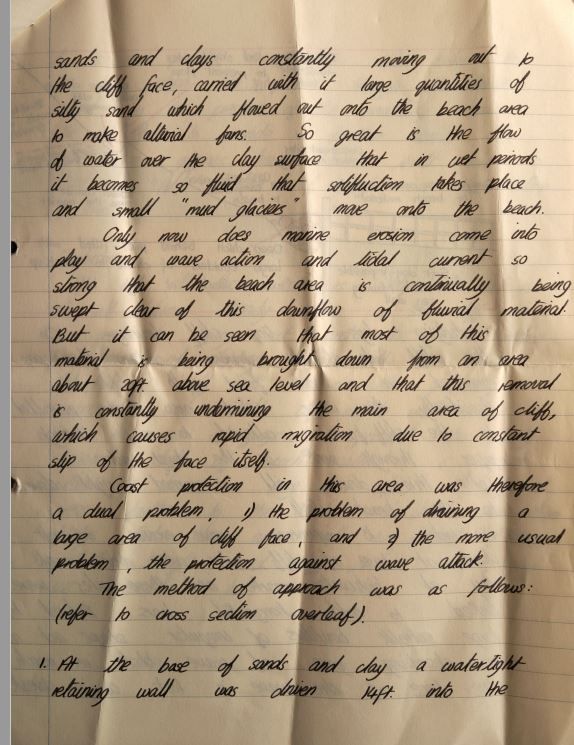 sands and clays constantly moving out to
the cliff face, carried with it large quantities of
silty sand which flowed out onto the beach area
to make alluvial fans. So great is the flow
of water over the clay surface that in wet periods
it becomes so fluid that solifluction takes place
and small "mud glaciers" move onto the beach.
Only now does marine erosion come into
play and wave action and tidal current so
strong that the beach area is continually being
swept clear of this downflow of fluvial material.
But it can be seen that most of this
material is being brought down from an area
about 20ft above sea level and that this removal
is constantly undermining the main area of cliff,
which causes rapid migration due to constant
slip of the face itself.
Coast protection in this area was therefore
a dual problem, 1) the problem of draining a
large area of cliff face, and 2) the more usual
problem, the protection against wave attack.
The method of approach was as follows:
(refer to cross section overleaf).
1. At the base of sands and clay a watertight
retaining wall was driven 14ft. into the